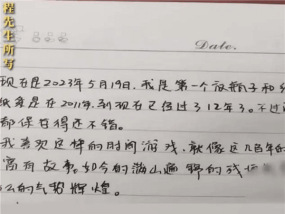 程先生所写
Date.
现在是2023年5月19日,我是第一个放瓶子和
纸条是在2011年,到现在已经过了12年了。不过
都保存得还不错。
我喜欢这样的时间游戏,就像这几百年的
富有故事。如今的满山遍野的残
么的气势辉煌。